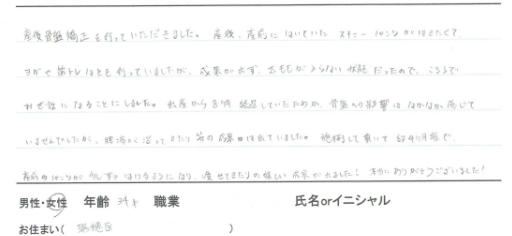 産後骨盤矯正を行っていただきました。産後、産前にはいていたスキニーパンツがはきたくて
ヨガや筋トレなどを行っていましたが、成果が出ず、太ももが入らない状態だったので、こちらで
お世話になることにしました。出産から8ヶ月経過していたためか、骨盤への影響はなかなか感じて
いませんでしたが、腰痛が治ってきたり等の効果は出ていました。施術して頂いて約4ヶ月程で、
産前のパンツが少しずつはけるようになり、痩せてきたりの嬉しい成果が出ました!本当にありがとうございました!
男性・女性 年齢 34才 職業 氏名orイニシャル
お住まい( 瑞穂区 )